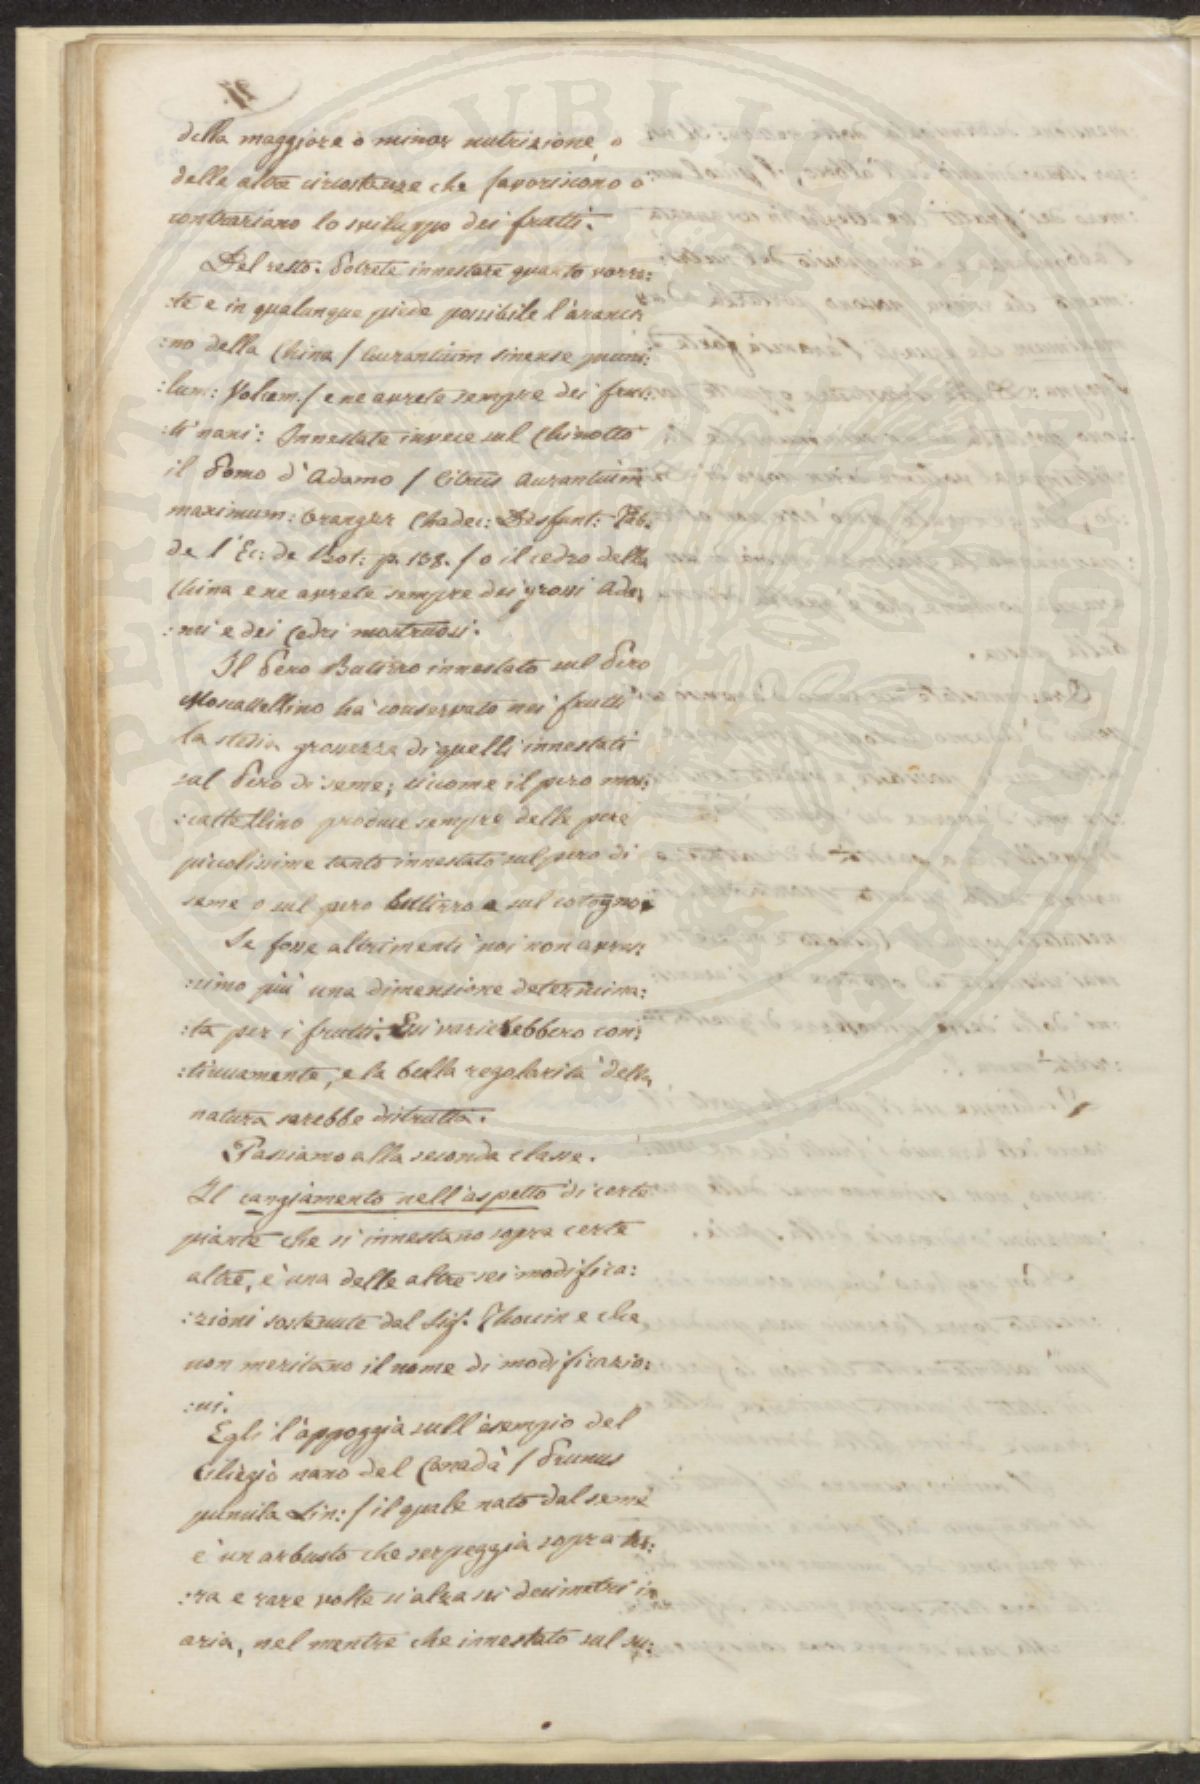 della maggiore o minor nutrizione, o
delle altre circostanze che favoriscono o
contrariano lo sviluppo dei frutti.
Del resto. Potrete innestare quanto vorre:
:te e in qualunque piede possibile l'aranci:
:no della China / Aurantium sinense pumi:
:lum: Volcam. / e ne avrete sempre dei frut:
:ti nani: Innestate invece sul Chinotto
il Pomo d'Adamo / Citrus Aurantium
maximum: Oranger Chadec: Desfont: Tab.
de l'Ec: de Bot: p. 138. / o il cedro della
China e ne avrete sempre dei grossi Ada:
:mi e dei Cedri mostruosi.
Il Pero Butirro innestato sul Pero
Moscattellino ha conservato nei frutti
la stessa grossezza di quelli innestati
sul Pero di seme; siccome il pero mos:
:cattellino produce sempre delle pere
piccolissime tanto innestato sul pero di
seme o sul pero buttirro e sul cotogno.
Se fosse altrimenti noi non avres:
:simo più una dimensione determina:
:ta per i frutti. Essi varierebbero con:
:tinuamente, e la bella regolarità della
natura sarebbe distrutta.
Passiamo alla seconda classe.
Il cangiamento nell'aspetto di certe
piante che si innestano sopra certe
altre, è una delle altre sei modifica:
:zioni sostenute dal Sig.r Thouin e che
non meritano il nome di modificazio:
:ni.
Egli l'appoggia sull'esempio del
Ciliegio nano del Canadà / Prunus
pumila Lin: / il quale nato dal seme
è un arbusto che serpeggia sopra ter:
:ra e rare volte si alza sei decimetri in
aria, nel mentre che innestato sul su: